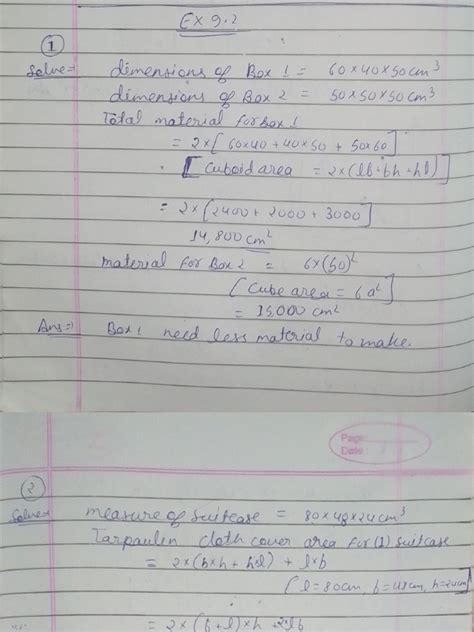 Ex 9.2
①
Solve⇒ dimensions of Box 1 = 60×40×50cm³
dimensions of Box 2 = 50×50×50cm³
Total material for Box 1
= 2×[60×40+40×50 + 50×60]
[Cuboid area = 2×(lb+bh+hl)]
= 2×[2400+2000+3000]
14,800 cm²
material for Box 2 = 6×(50)²
[Cube area = 6a²]
= 15,000 cm²
Ans:⇒ Box 1 need less material to make.
Page:
Date:
②
Solve⇒ measure of suitcase = 80×48×24cm³
Tarpaulin cloth cover area for (1) suitcase
= 2×(b×h + h×l) + l×b
[l=80cm, b=48cm, h=24cm]
= 2×(b+l)×h +2×lb